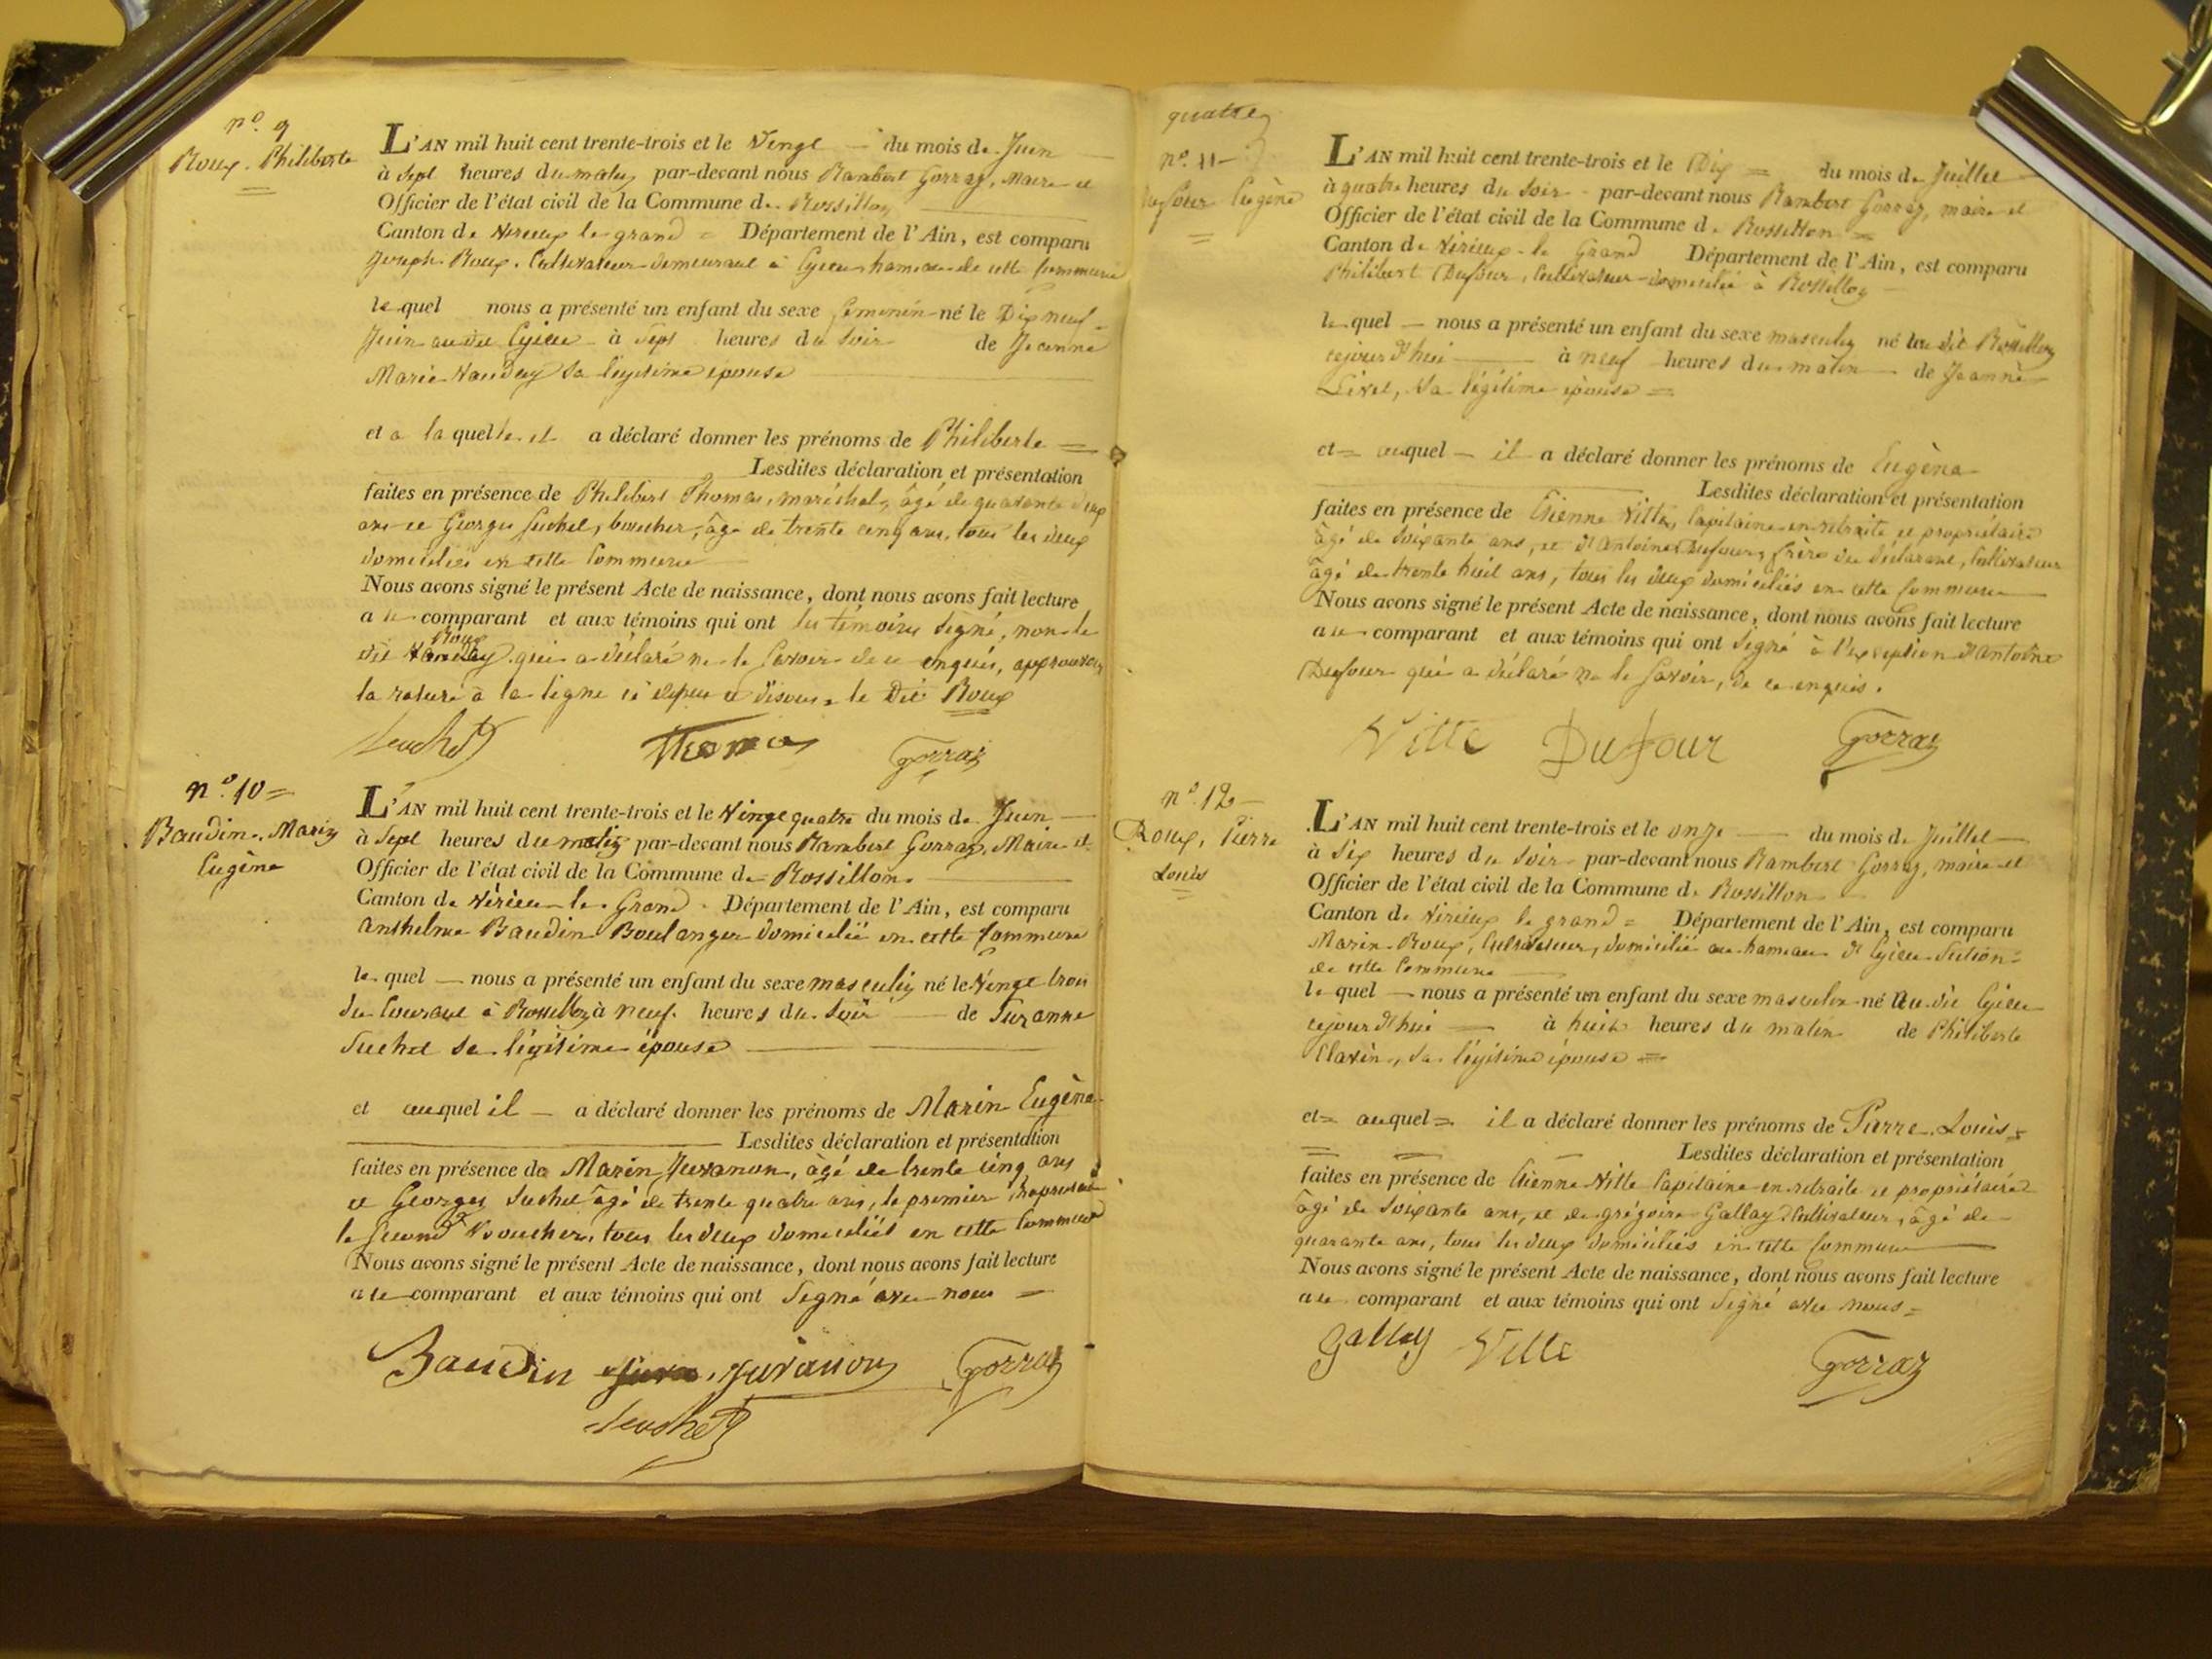 n.º 9
Roux. Philiberte
L'AN mil huit cent trente-trois et le Vingt du mois de Juin
à Sept heures du matin par-devant nous Rambert Gorraz, Maire et
Officier de l'état civil de la Commune de Rossillon
Canton de Virieux le grand = Département de l'Ain, est comparu
Joseph Roux, Cultivateur demeurant à Cyzieu hameau de cette Commune
le quel nous a présenté un enfant du sexe féminin né le Dix neuf
Juin au dit Cyzieu à Sept heures du soir de Jeanne
Marie sa légitime épouse
et a la quelle il a déclaré donner les prénoms de Philiberte =
Lesdites déclaration et présentation
faites en présence de Philibert Thomas, maréchal, âgé de quarante deux
ans et Georges Suchet, boucher, âgé de trente cinq ans, tous les deux
domiciliés en cette Commune
Nous avons signé le présent Acte de naissance, dont nous avons fait lecture
a le comparant et aux témoins qui ont les témoins signé, non le
Roux
dit qui a déclaré ne le savoir de ce enquis, approuvant
la rature à la ligne ci dessus et disons = le Dit Roux
Suchet Thomas Gorraz
n.º 10 =
Baudin. Marin
Eugène
L'AN mil huit cent trente-trois et le Vingt quatre du mois de Juin
à Sept heures du matin par-devant nous Rambert Gorraz, Maire et
Officier de l'état civil de la Commune de Rossillon.
Canton de Virieu le Grand. Département de l'Ain, est comparu
Anthelme Baudin Boulanger domicilié en cette Commune
le quel nous a présenté un enfant du sexe masculin né le Vingt trois
du Courant à Rossillon à neuf heures du soir de Suzanne
Suchet sa légitime épouse
et auquel il a déclaré donner les prénoms de Marin Eugène
Lesdites déclaration et présentation
faites en présence de Marin Juvanon, âgé de trente cinq ans
et Georges Suchet âgé de trente quatre ans, le premier propriétaire
le second boucher, tous les deux domiciliés en cette Commune
Nous avons signé le présent Acte de naissance, dont nous avons fait lecture
a le comparant et aux témoins qui ont Signé avec nous =
Baudin Juvanon Gorraz
Suchet
quatre
n.º 11
Dufour Eugène
L'AN mil huit cent trente-trois et le Dix = du mois de Juillet
à quatre heures du Soir par-devant nous Rambert Gorraz, maire et
Officier de l'état civil de la Commune de Rossillon =
Canton de Virieux le Grand Département de l'Ain, est comparu
Philibert Dufour, Cultivateur domicilié à Rossillon
le quel nous a présenté un enfant du sexe masculin né au dit Rossillon
cejourd'hui à neuf heures du matin de Jeanne
Livet, Sa légitime épouse =
et = auquel il a déclaré donner les prénoms de Eugène
Lesdites déclaration et présentation
faites en présence de Etienne Vitte, Capitaine en retraite et propriétaire
âgé de Soixante ans, et d'Antoine Dufour, frère du déclarant, Cultivateur
âgé de trente huit ans, tous les deux domiciliés en cette Commune
Nous avons signé le présent Acte de naissance, dont nous avons fait lecture
a le comparant et aux témoins qui ont Signé à l'exception d'antoine
Dufour qui a déclaré ne le savoir, de ce enquis.
Vitte Dufour Gorraz
n.º 12
Roux, Pierre
Louis
L'AN mil huit cent trente-trois et le onze du mois de Juillet
à Six heures du Soir par-devant nous Rambert Gorraz, maire et
Officier de l'état civil de la Commune de Rossillon
Canton de Virieux le grand = Département de l'Ain, est comparu
Marin Roux, Cultivateur, domicilié au hameau d'Cyzieu Section =
de cette Commune
le quel nous a présenté un enfant du sexe masculin né au dit Cyzieu
cejourd'hui à huit heures du matin de Philiberte
Clavin, Sa légitime épouse =
et = auquel = il a déclaré donner les prénoms de Pierre Louis =
Lesdites déclaration et présentation
faites en présence de Etienne Vitte Capitaine en retraite et propriétaire
âgé de Soixante ans, et de grégoire Gallay Cultivateur, âgé de
quarante ans, tous les deux domiciliés en cette Commune
Nous avons signé le présent Acte de naissance, dont nous avons fait lecture
a le comparant et aux témoins qui ont Signé avec nous =
Gallay Vitte Gorraz